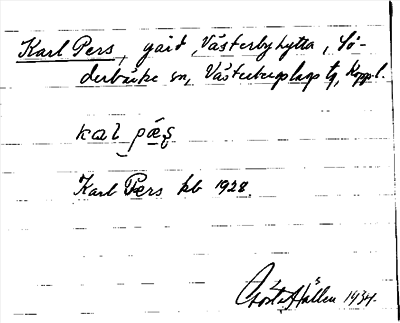 Karl Pers, gård, Västerbyhytta, Sö-
derbärke sn, Västerbergslags tg, Kopp. l.
kal pæʂ
Karl Pers kb 1928.
Gösta Hallén 1934.